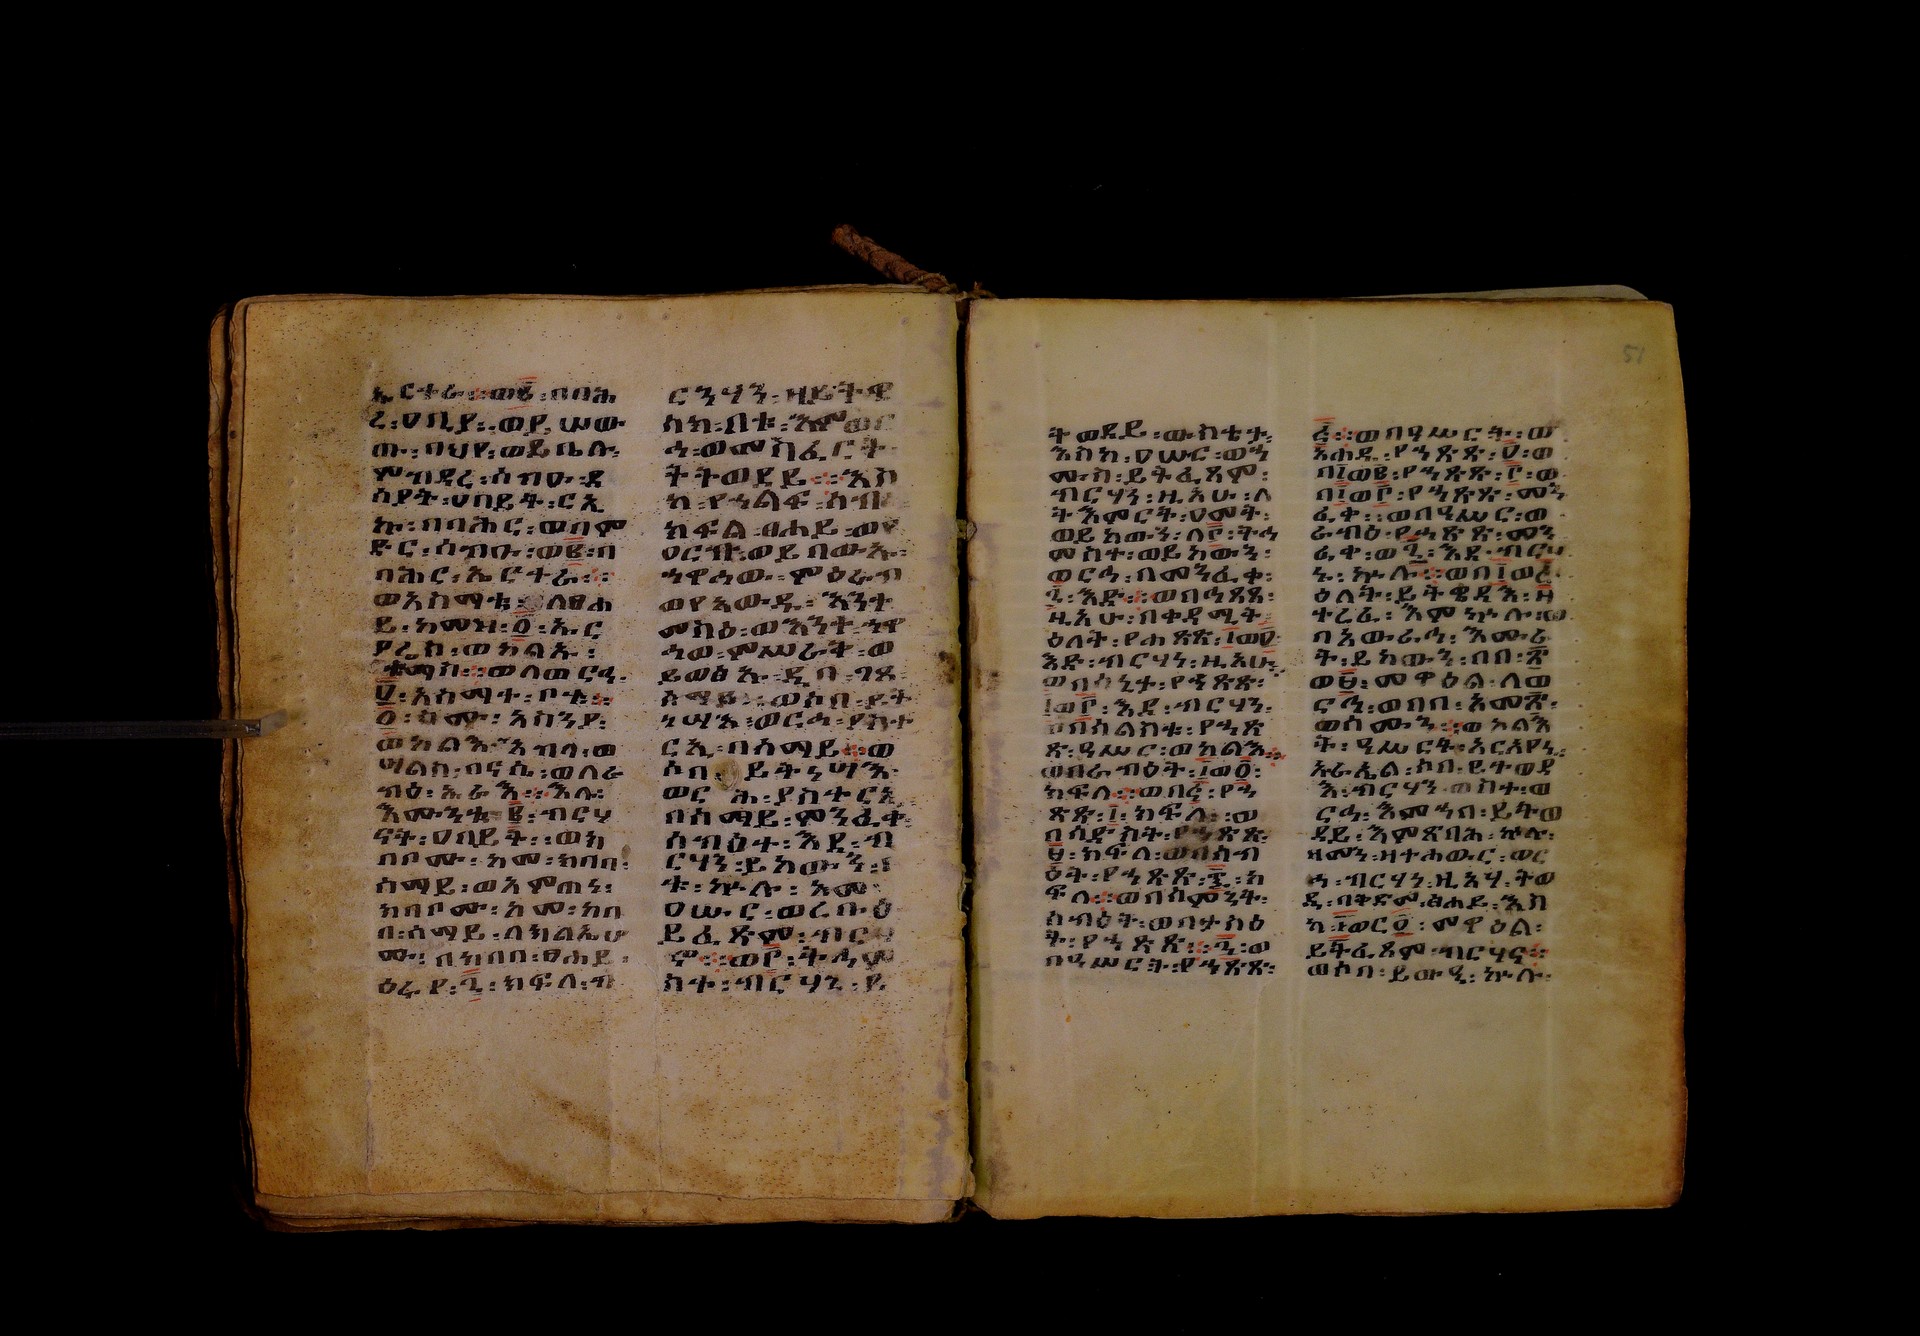 ኤርተራ፨ወ፪፡በባሕ
ረ፡ዐቢይ፡ወያሠው
ጡ፡በህየ፡ወይቤሉ፡
ምብዳረ፡ሰብዑ፡ደ
ሰያት፡ዐበይት፡ርኢ
ኩ፡በባሕር፡ወበም
ድር፡ሰብዑ፡ወ፪፡በ
ባሕር፡ኤርተራ፨
ወአስማቱ፡ለፀሐ
ይ፡ከመዝ፡፩፡ኦር
ያሬስ፡ወካልኡ፡
ቶማስ፨ወለወርኅ፡
፬፡አስማት፡ቦቱ፨
፩፡ስሙ፡አስንያ፡
ወካልእ፡እብላ፡ወ
ሣልስ፡ብናሴ፡ወለራ
ብዕ፡ኤራእ፨እሉ፡
እሙንቱ፡፪፡ብርሃ
ናት፡ዐበይት፡ወክ
በቦሙ፡ከመ፡ክበበ፡
ሰማይ፡ወአምጠነ፡
ክበቦሙ፡ከመ፡ክበ
በ፡ሰማይ፡ለክልኤሆ
ሙ፡በክበበ፡ፀሐይ፡
ዕሬየ፡፯፡ክፍለ፡ብ
ርንሃን፡ዘይትዌ
ሰክ፡ቦቱ፡እምወር
ኅ፡ወመስፈርት፡
ትትወደይ፨እስ
ከ፡የኀልፍ፡ሰብዕ
ክፍል፡ፀሐይ፡ወየ
ዐርቡ፡ወይበውኡ፡
ኆኃተ፡ምዕራብ
ወየአውዱ፡እንተ
መስዕ፡ወእንተ፡ኆ
ኅወ፡ምሥራት፡ወ
ይወፅኡ፡ዲበ፡ገጸ
ሰማይ፡ወሶበ፡ይት
ነሣእ፡ወርኅ፡ያስተ
ርኢ፡በሰማይ፨ወ
ሶበ፡ይትነሣእ፡
ወርሕ፡ያስተርኢ
በሰማይ፡ምንፈቀ፡
ሰብዕተ፡እደ፡ብ
ርሃን፡ይከውን፡
ቱ፡ኵሉ፡አመ፡
ዐሡር፡ወረቡዕ
ይፈጽም፡ብርሃ
ኖ፨ወ፫፡ትእም
ስተ፡ብርሃን፡ይ
ትወደይ፡ውስቴታ፡
እስከ፡ዐሡር፡ወኀ
ሙስ፡ይትፈጸም፡
ብርሃን፡ዚአሁ፡ለ
ትእምርት፡ዐመት፡
ወይከውን፡ለ፫፡ትኅ
መስተ፡ወይከውን፡
ወርኅ፡በመንፈቀ፡
፯፡እድ፨ወበኅጸጸ፡
ዚአሁ፡በቀዳሚት፡
ዕለት፡የሐጽጽ፡፲ወ፬፡
እድ፡ብርሃነ፡ዚአሁ፡
ወበሳኒታ፡የኀጽጽ፡
፲ወ፫፡እደ፡ብርሃን፡
ወበሰልስቱ፡የኀጽ
ጽ፡ዓሠርወካልእ፨
ወበራብዕት፡፲ወ፩፡
ክፍለ፨ወበ፭፡የኀ
ጽጽ፡፲፡ክፍለ፡ወ
በሳድስት፡የኀጽጽ፡
፱፡ክፍለ፡ወበሰብ
ዕት፡የኀጽጽ፡፰፡ክ
ፍለ፨ወበሰምንት፡
ሰብዕት፡ወበታስዕ
ት፡የኀጽጽ፨፯፡ወ
በዓሥርት፡የኀጽጽ፡
፭፨ወበዓሥርት፡ወ
አሐዱ፡የኀጽጽ፡፬፡ወ
በ፲ወ፪፡የኀጽጽ፡፫፡ወ
በ፲ወ፫፡የኀጽጽ፡መን
ፈቀ፡ወበዓሡር፡ወ
ራብዕ፡የኀጽጽ፡መን
ፈቀ፡ወ፯፡እደ፡ብርሃ
ኑ፡ኵሉ፨ወበ፲ወ፭፡
ዕለት፡ይትዌዳእ፡ዘ
ተረፈ፡እምኵሉ፡ወ
በአውራኅ፡እሙራ
ት፡ይከውን፡በበ፡፳
ወ፱፡መዋዕል፡ለወ
ርኅ፡ወበበ፡አመ፳፡
ወሰሙን፨ወካልእ
ት፡ሣሥርት፡አርአየኒ፡
ኡራኤል፡ሶበ፡ይተወደ
እ፡ብርሃን፡ውስተ፡ወ
ርኅ፡እምኀበ፡ይትወ
ደይ፡እምጸባሕ፡ኵሉ፡
ዘመን፡ዘተሐውር፡ወር
ኅ፡ብርሃን፡ዚአሃ፡ትወ
ዲ፡በቅድመ፡ፀሐይ፡እስ
ከ፡፲ወር፬፡መዋዕል፡
ይትፈጸም፡ብርሃና፨
ወሶበ፡ይውዒ፡ኵሉ፡